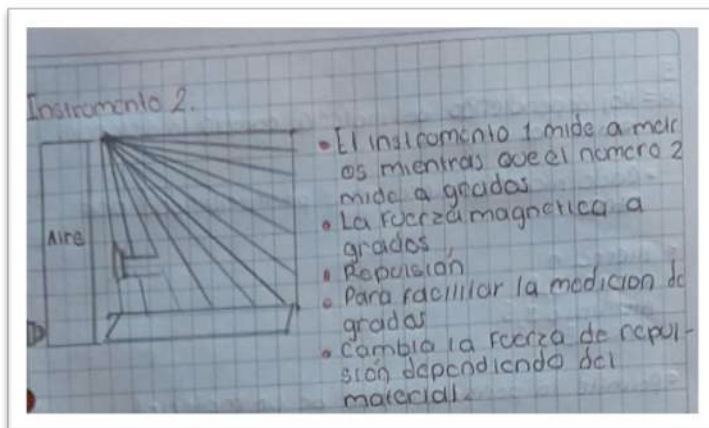 Instrumento 2.
Aire
• El instromento 1 mide a metr
os mientras que el nomero 2
mide a grados
• La fuerza magnetica a
grados,
• Repulsión
• Para facilitar la medicion de
grados
• Cambia la fuerza de repul-
sión dependiendo del
material.